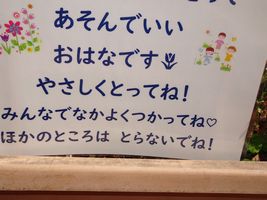 あそんでいい
おはなです
やさしくとってね!
みんなでなかよくつかってね♡
ほかのところは とらないでね!